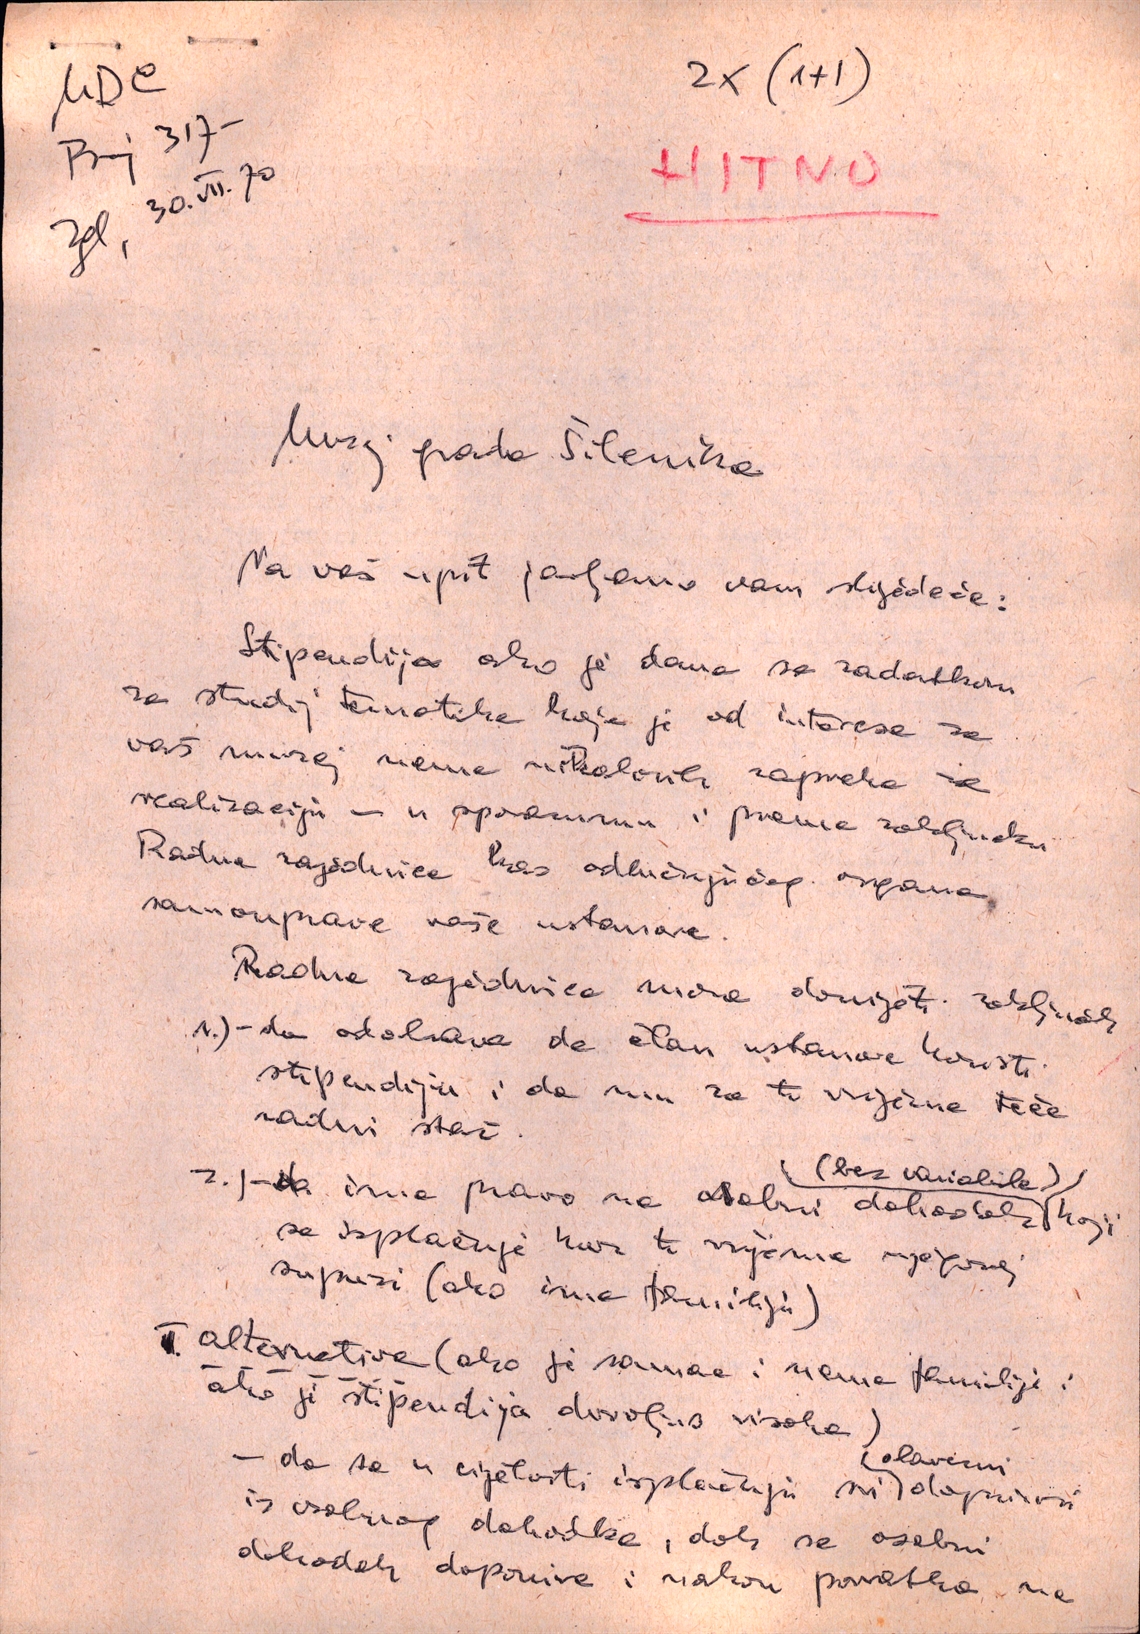 MDC
Broj 317-
Zgb, 30.VII.70
2x (1+1)
HITNO
Muzej grada Šibenika
Na vaš upit javljamo vam slijedeće:
Stipendija ako je dana sa zadatkom
za studij tematike koja je od interesa za
vaš muzej nema nikakovih zapreka za
realizaciju — u sporazumu i prema zaključku
Radne zajednice kao odlučujućeg organa
samouprave vaše ustanove.
Radna zajednica mora donijeti zaključak
1.) - da odobrava da član ustanove koristi
stipendiju i da mu za to vrijeme teče
radni staž.
2.) - da ima pravo na osobni dohodak (bez varijabile) koji
se isplaćuje kroz to vrijeme njegovoj
supruzi (ako ima familiju)
II. alternativa (ako je samac i nema familije i
ako je stipendija dovoljno visoka)
- da se u cijelosti isplaćuju svi obavezni doprinosi
iz osobnog dohotka, dok se osobni
dohodak deponira i nakon povratka na